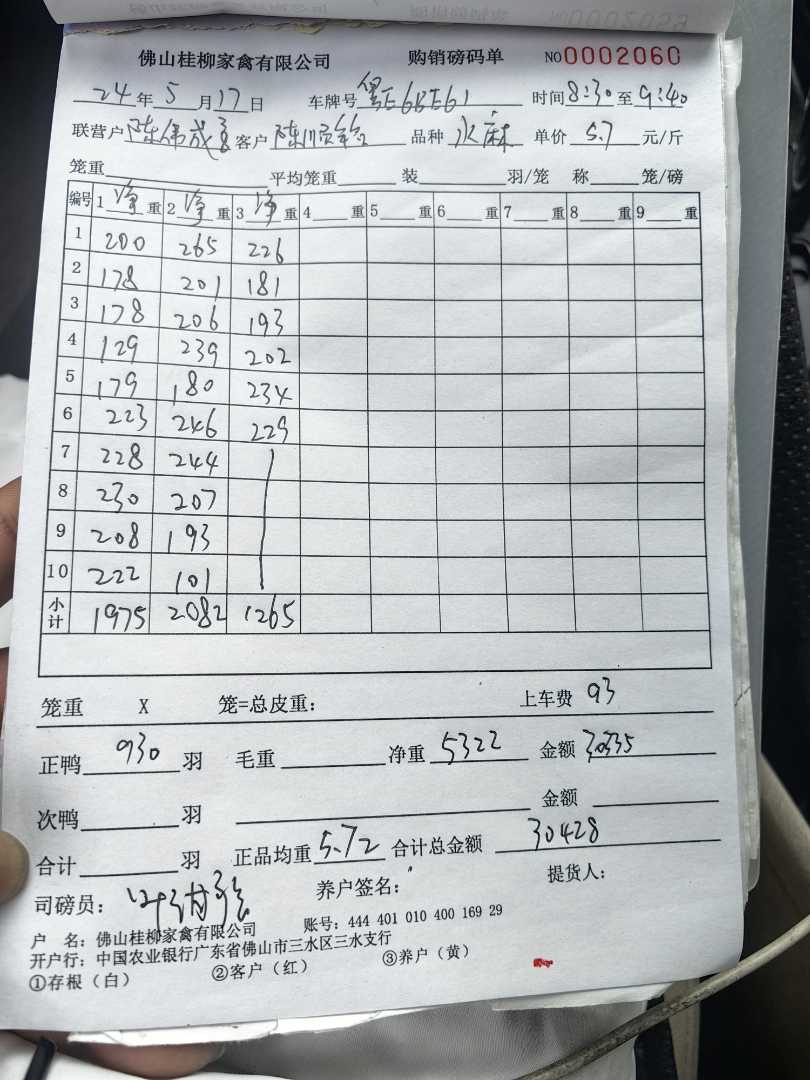 佛山桂柳家禽有限公司 购销磅码单 NO0002060
24年5月17日 车牌号 粤E6BE61 时间8:30至9:40
联营户 陈伟成 客户 陈顺 品种 水麻 单价 5.7 元/斤
笼重 平均笼重 装 羽/笼 称 笼/磅
编号 1 净 重 2 净 重 3 净 重 4 重 5 重 6 重 7 重 8 重 9 重
1 200 265 226
2 178 201 181
3 178 206 193
4 129 239 202
5 179 180 234
6 223 246 229
7 228 244
8 230 207
9 208 193
10 222 101
小计 1975 2082 1265
笼重 X 笼=总皮重: 上车费 93
正鸭 930 羽 毛重 净重 5322 金额 30335
次鸭 羽 金额
合计 羽 正品均重 5.72 合计总金额 30428
司磅员: 养户签名: 提货人:
户 名: 佛山桂柳家禽有限公司 账号: 444 401 010 400 169 29
开户行: 中国农业银行广东省佛山市三水区三水支行
①存根(白) ②客户(红) ③养户(黄)